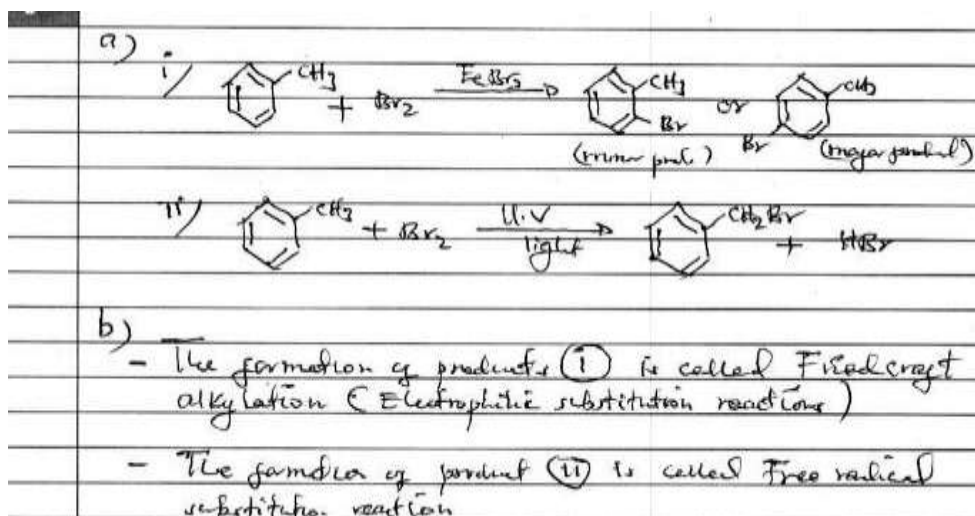 a)
i/ CH3 + Br2 FeBr3 CH3 Br or CH3 Br
(minor prod.) (major product)
ii/ CH3 + Br2 U.V light CH2Br + HBr
b)
- The formation of products (i) is called Friedcraft
alkylation (Electrophilic substitution reactions)
- The formation of product (ii) is called Free radical
substitution reaction